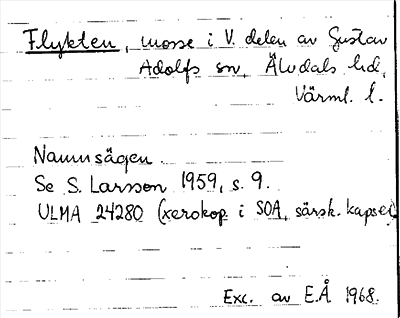 Flykten, mosse i V. delen av Gustav
Adolfs sn, Älvdals hd,
Värml. l.
Namnsägen
Se S. Larsson 1959, s. 9.
ULMA 24280 (xerokop. i SOA, särsk. kapsel)
Exc. av E.Å 1968.